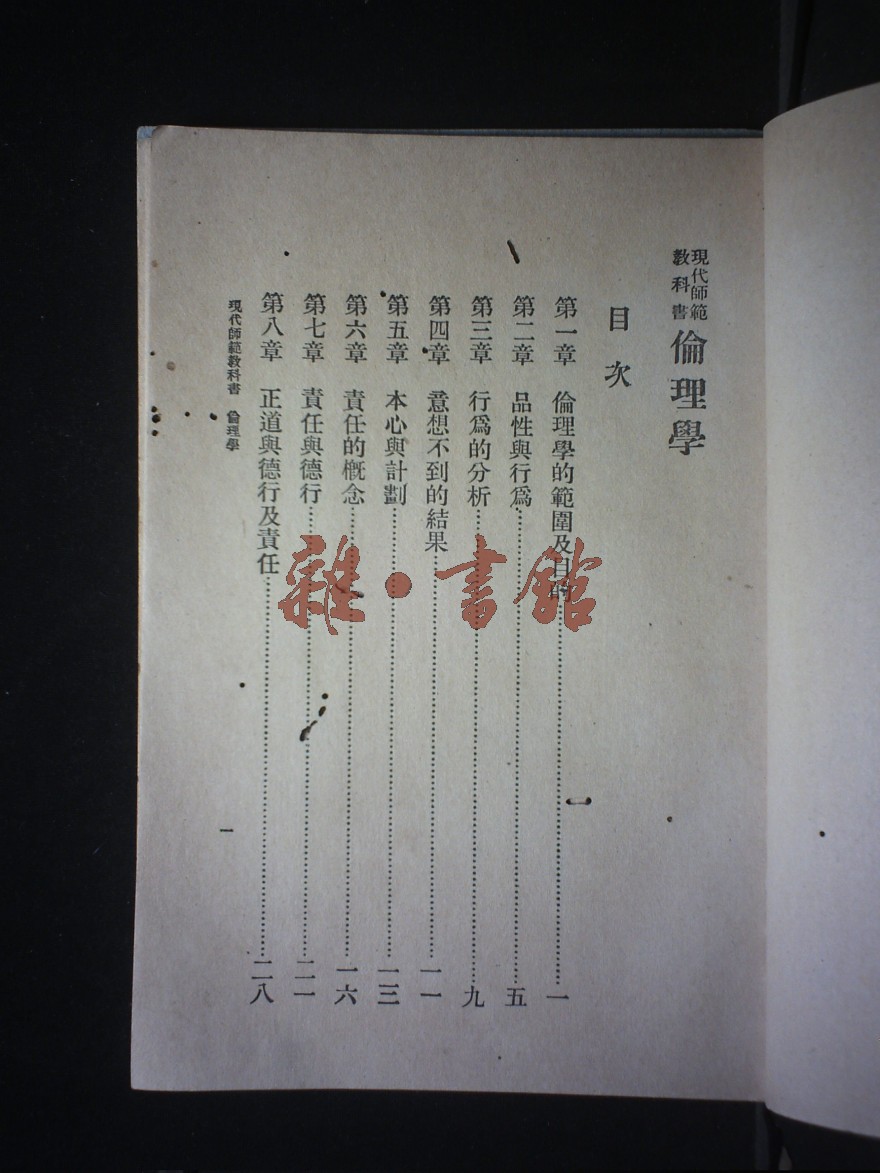 現代師範
教科書
倫理學
目次
第一章 倫理學的範圍及目的……一
第二章 品性與行爲……五
第三章 行爲的分析……九
第四章 意想不到的結果……一一
第五章 本心與計劃……一三
第六章 責任的概念……一六
第七章 責任與德行……二一
第八章 正道與德行及責任……二八
現代師範教科書 倫理學
一
雜·書館